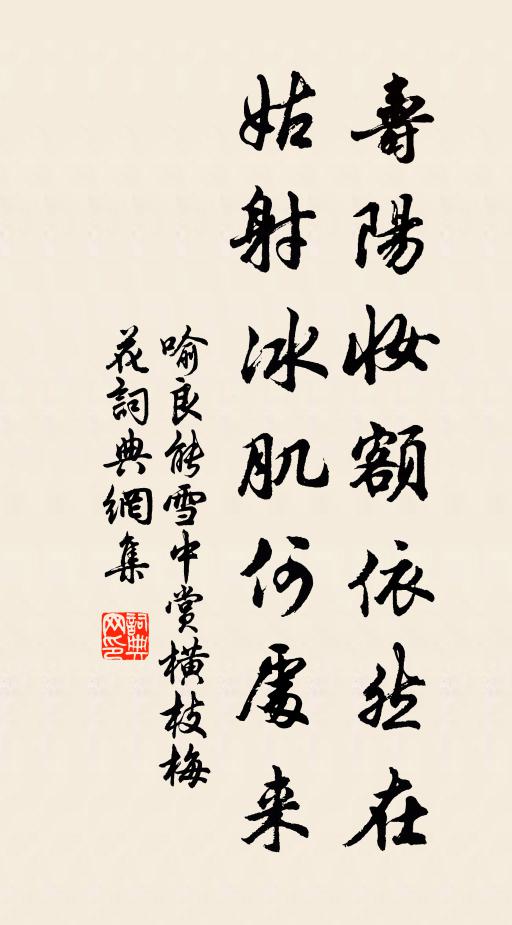 壽陽妝額依然在
姑射冰肌何處来
喻良能雪中賞橫枝梅
花詞典網集
詞典
网印